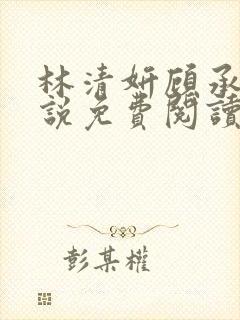 林清妍顾承
說免費閱讀
彭某權